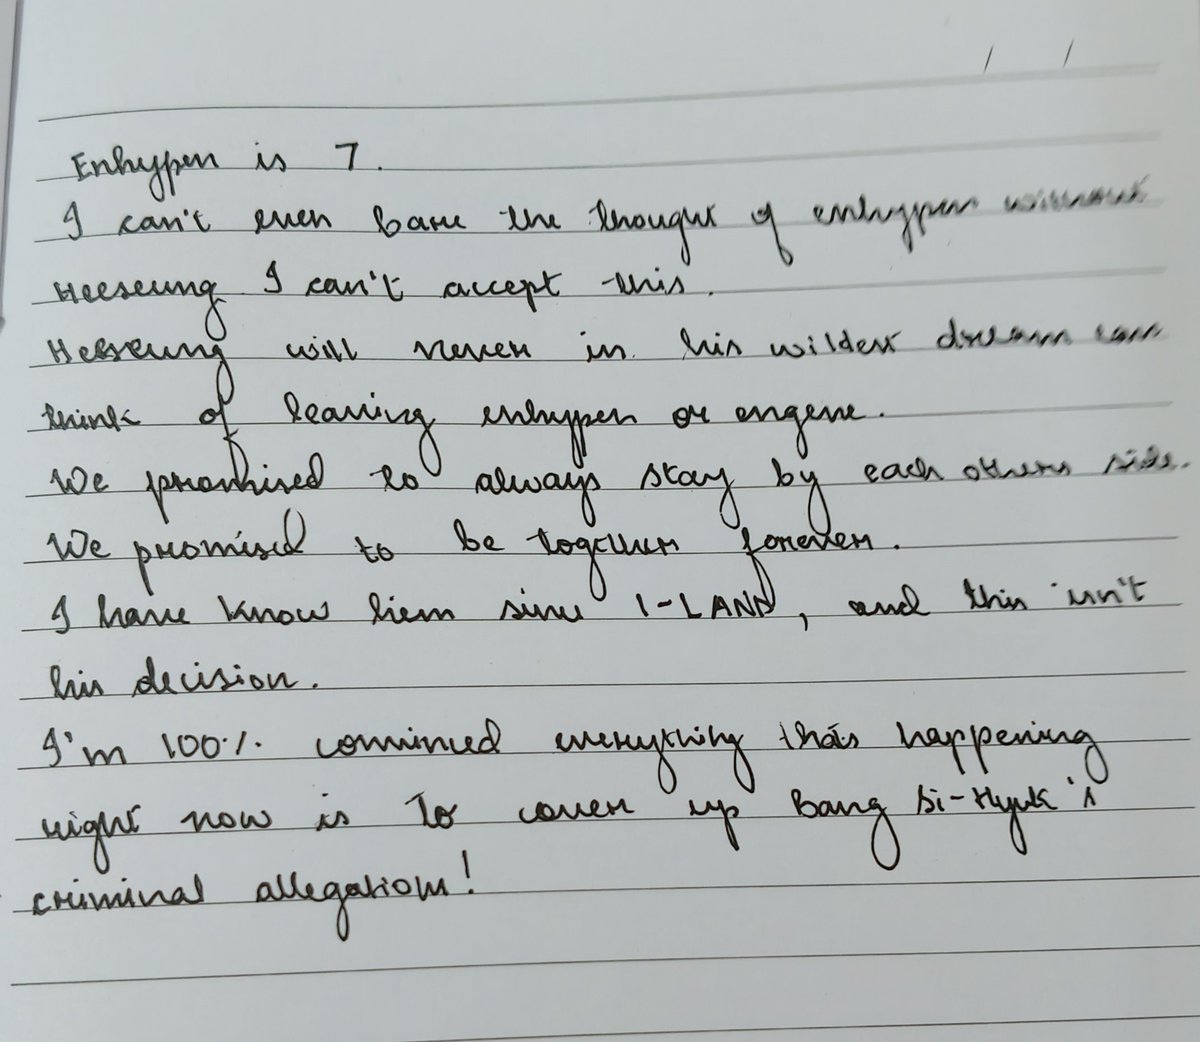 Enhypen is 7.
I can't even bare the thought of enhypen without
Heeseung I can't accept this.
Heeseung will never in his wildest dream can
think of leaving enhypen or engene.
We promised to always stay by each others side.
We promised to be together forever.
I have know him since I-LAND, and this isn't
his decision.
I'm 100% convinced everything that's happening
right now is to cover up Bang Si-Hyuk's
criminal allegations!